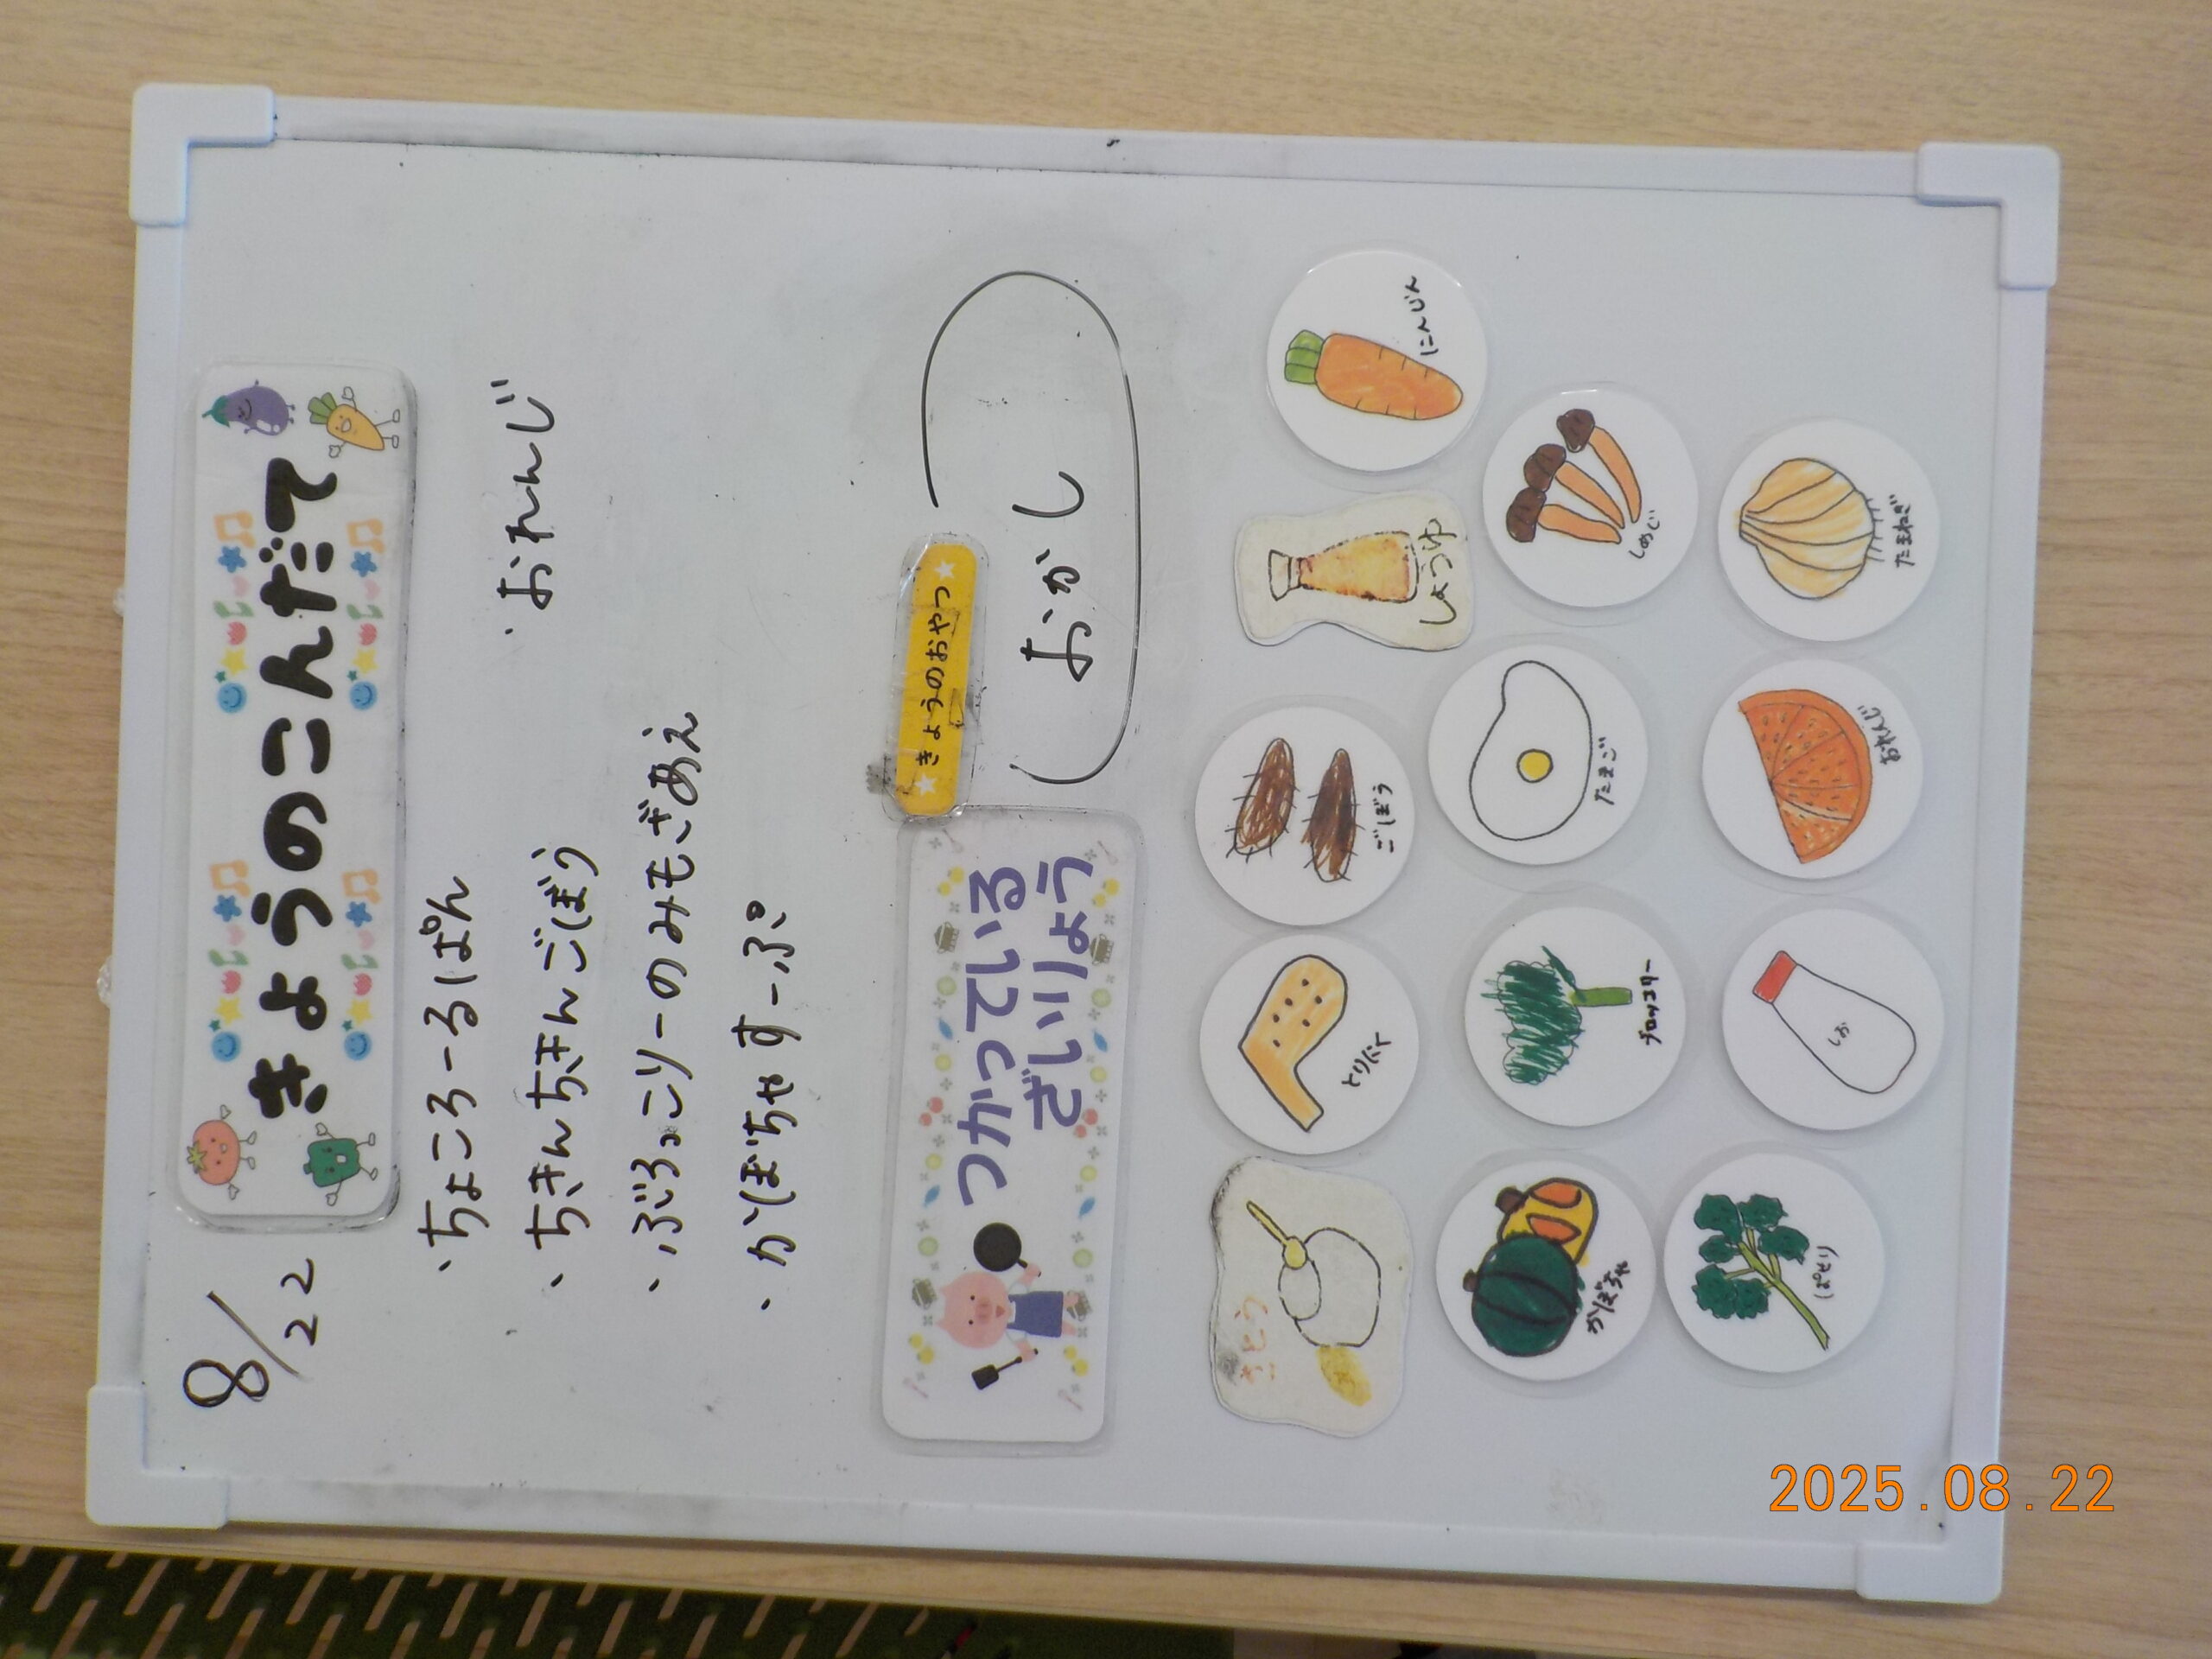 8/22
きょうのこんだて
・ちょころーるぱん
・おれんじ
・ちきんちきんごぼう
・ぶろっこりーのみもざあえ
・かぼちゃすーぷ
きょうのおやつ
おかし
つかっている
ざいりょう
さとう
とりにく
ごぼう
しょうゆ
にんじん
かぼちゃ
ブロッコリー
たまご
しめじ
ぱせり
しお
おれんじ
たまねぎ
2025.08.22